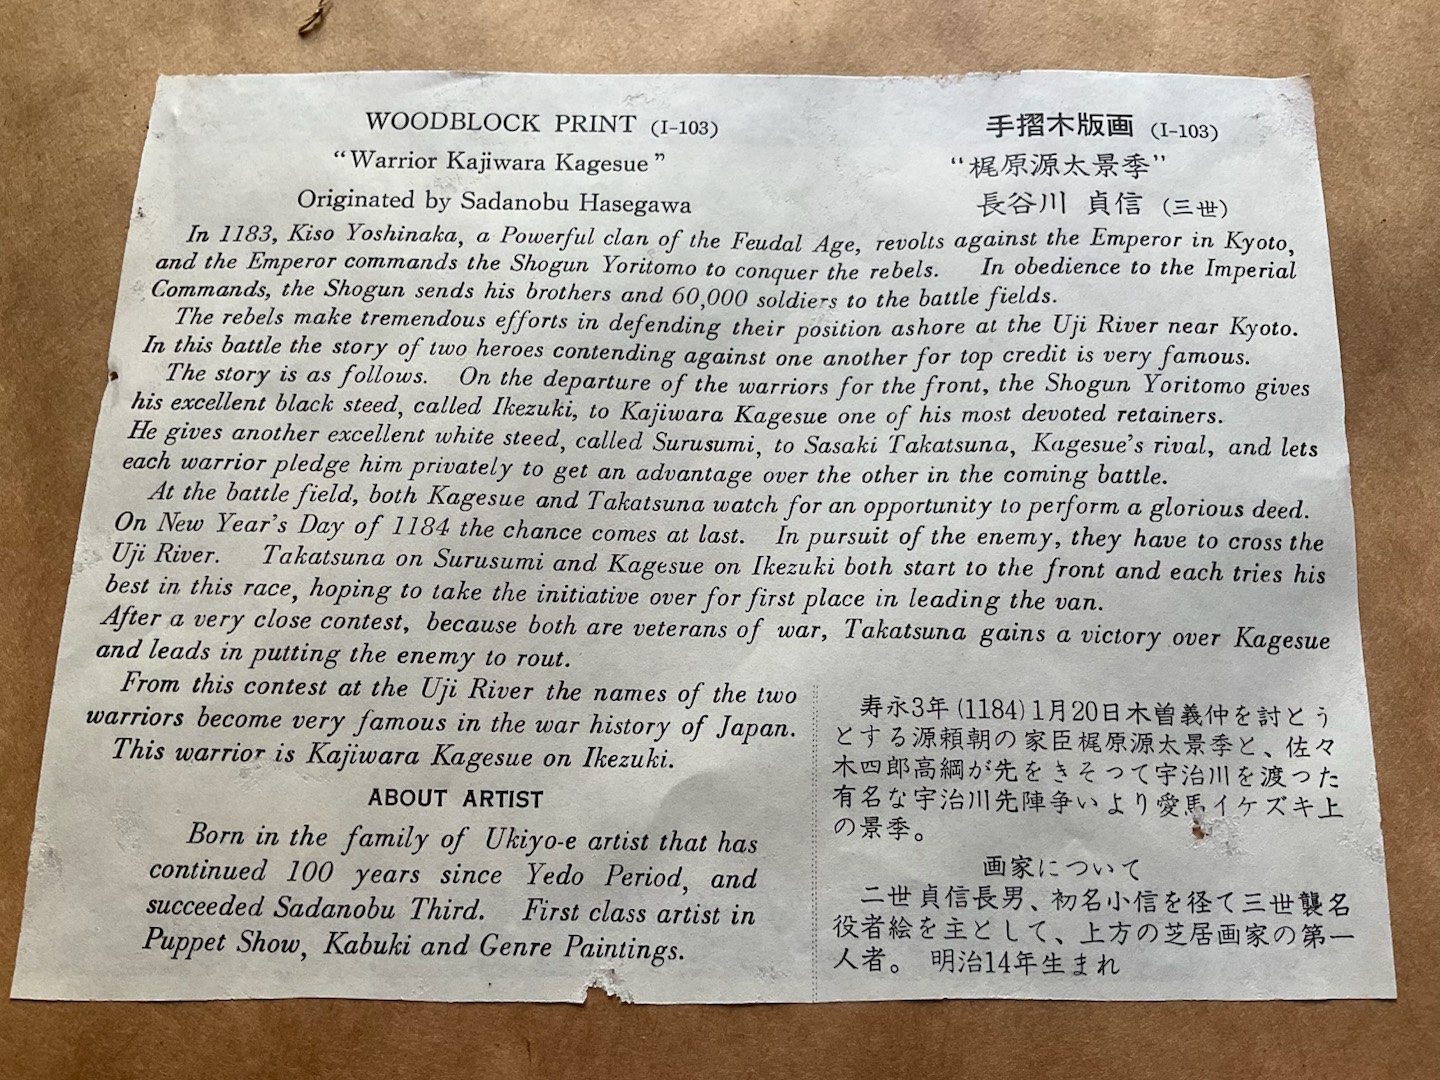 WOODBLOCK PRINT (I-103)
"Warrior Kajiwara Kagesue"
Originated by Sadanobu Hasegawa
手摺木版画 (I-103)
"梶原源太景季"
長谷川 貞信 (三世)
In 1183, Kiso Yoshinaka, a Powerful clan of the Feudal Age, revolts against the Emperor in Kyoto,
and the Emperor commands the Shogun Yoritomo to conquer the rebels. In obedience to the Imperial
Commands, the Shogun sends his brothers and 60,000 soldiers to the battle fields.
The rebels make tremendous efforts in defending their position ashore at the Uji River near Kyoto.
In this battle the story of two heroes contending against one another for top credit is very famous.
The story is as follows. On the departure of the warriors for the front, the Shogun Yoritomo gives
his excellent black steed, called Ikezuki, to Kajiwara Kagesue one of his most devoted retainers.
He gives another excellent white steed, called Surusumi, to Sasaki Takatsuna, Kagesue's rival, and lets
each warrior pledge him privately to get an advantage over the other in the coming battle.
At the battle field, both Kagesue and Takatsuna watch for an opportunity to perform a glorious deed.
On New Year's Day of 1184 the chance comes at last. In pursuit of the enemy, they have to cross the
Uji River. Takatsuna on Surusumi and Kagesue on Ikezuki both start to the front and each tries his
best in this race, hoping to take the initiative over for first place in leading the van.
After a very close contest, because both are veterans of war, Takatsuna gains a victory over Kagesue
and leads in putting the enemy to rout.
From this contest at the Uji River the names of the two
warriors become very famous in the war history of Japan.
This warrior is Kajiwara Kagesue on Ikezuki.
ABOUT ARTIST
Born in the family of Ukiyo-e artist that has
continued 100 years since Yedo Period, and
succeeded Sadanobu Third. First class artist in
Puppet Show, Kabuki and Genre Paintings.
寿永3年(1184)1月20日木曽義仲を討とう
とする源頼朝の家臣梶原源太景季と、佐々
木四郎高綱が先をきそつて宇治川を渡った
有名な宇治川先陣争いより愛馬イケズキ上
の景季。
画家について
二世貞信長男、初名小信を経て三世襲名
役者絵を主として、上方の芝居画家の第一
人者。 明治14年生まれ